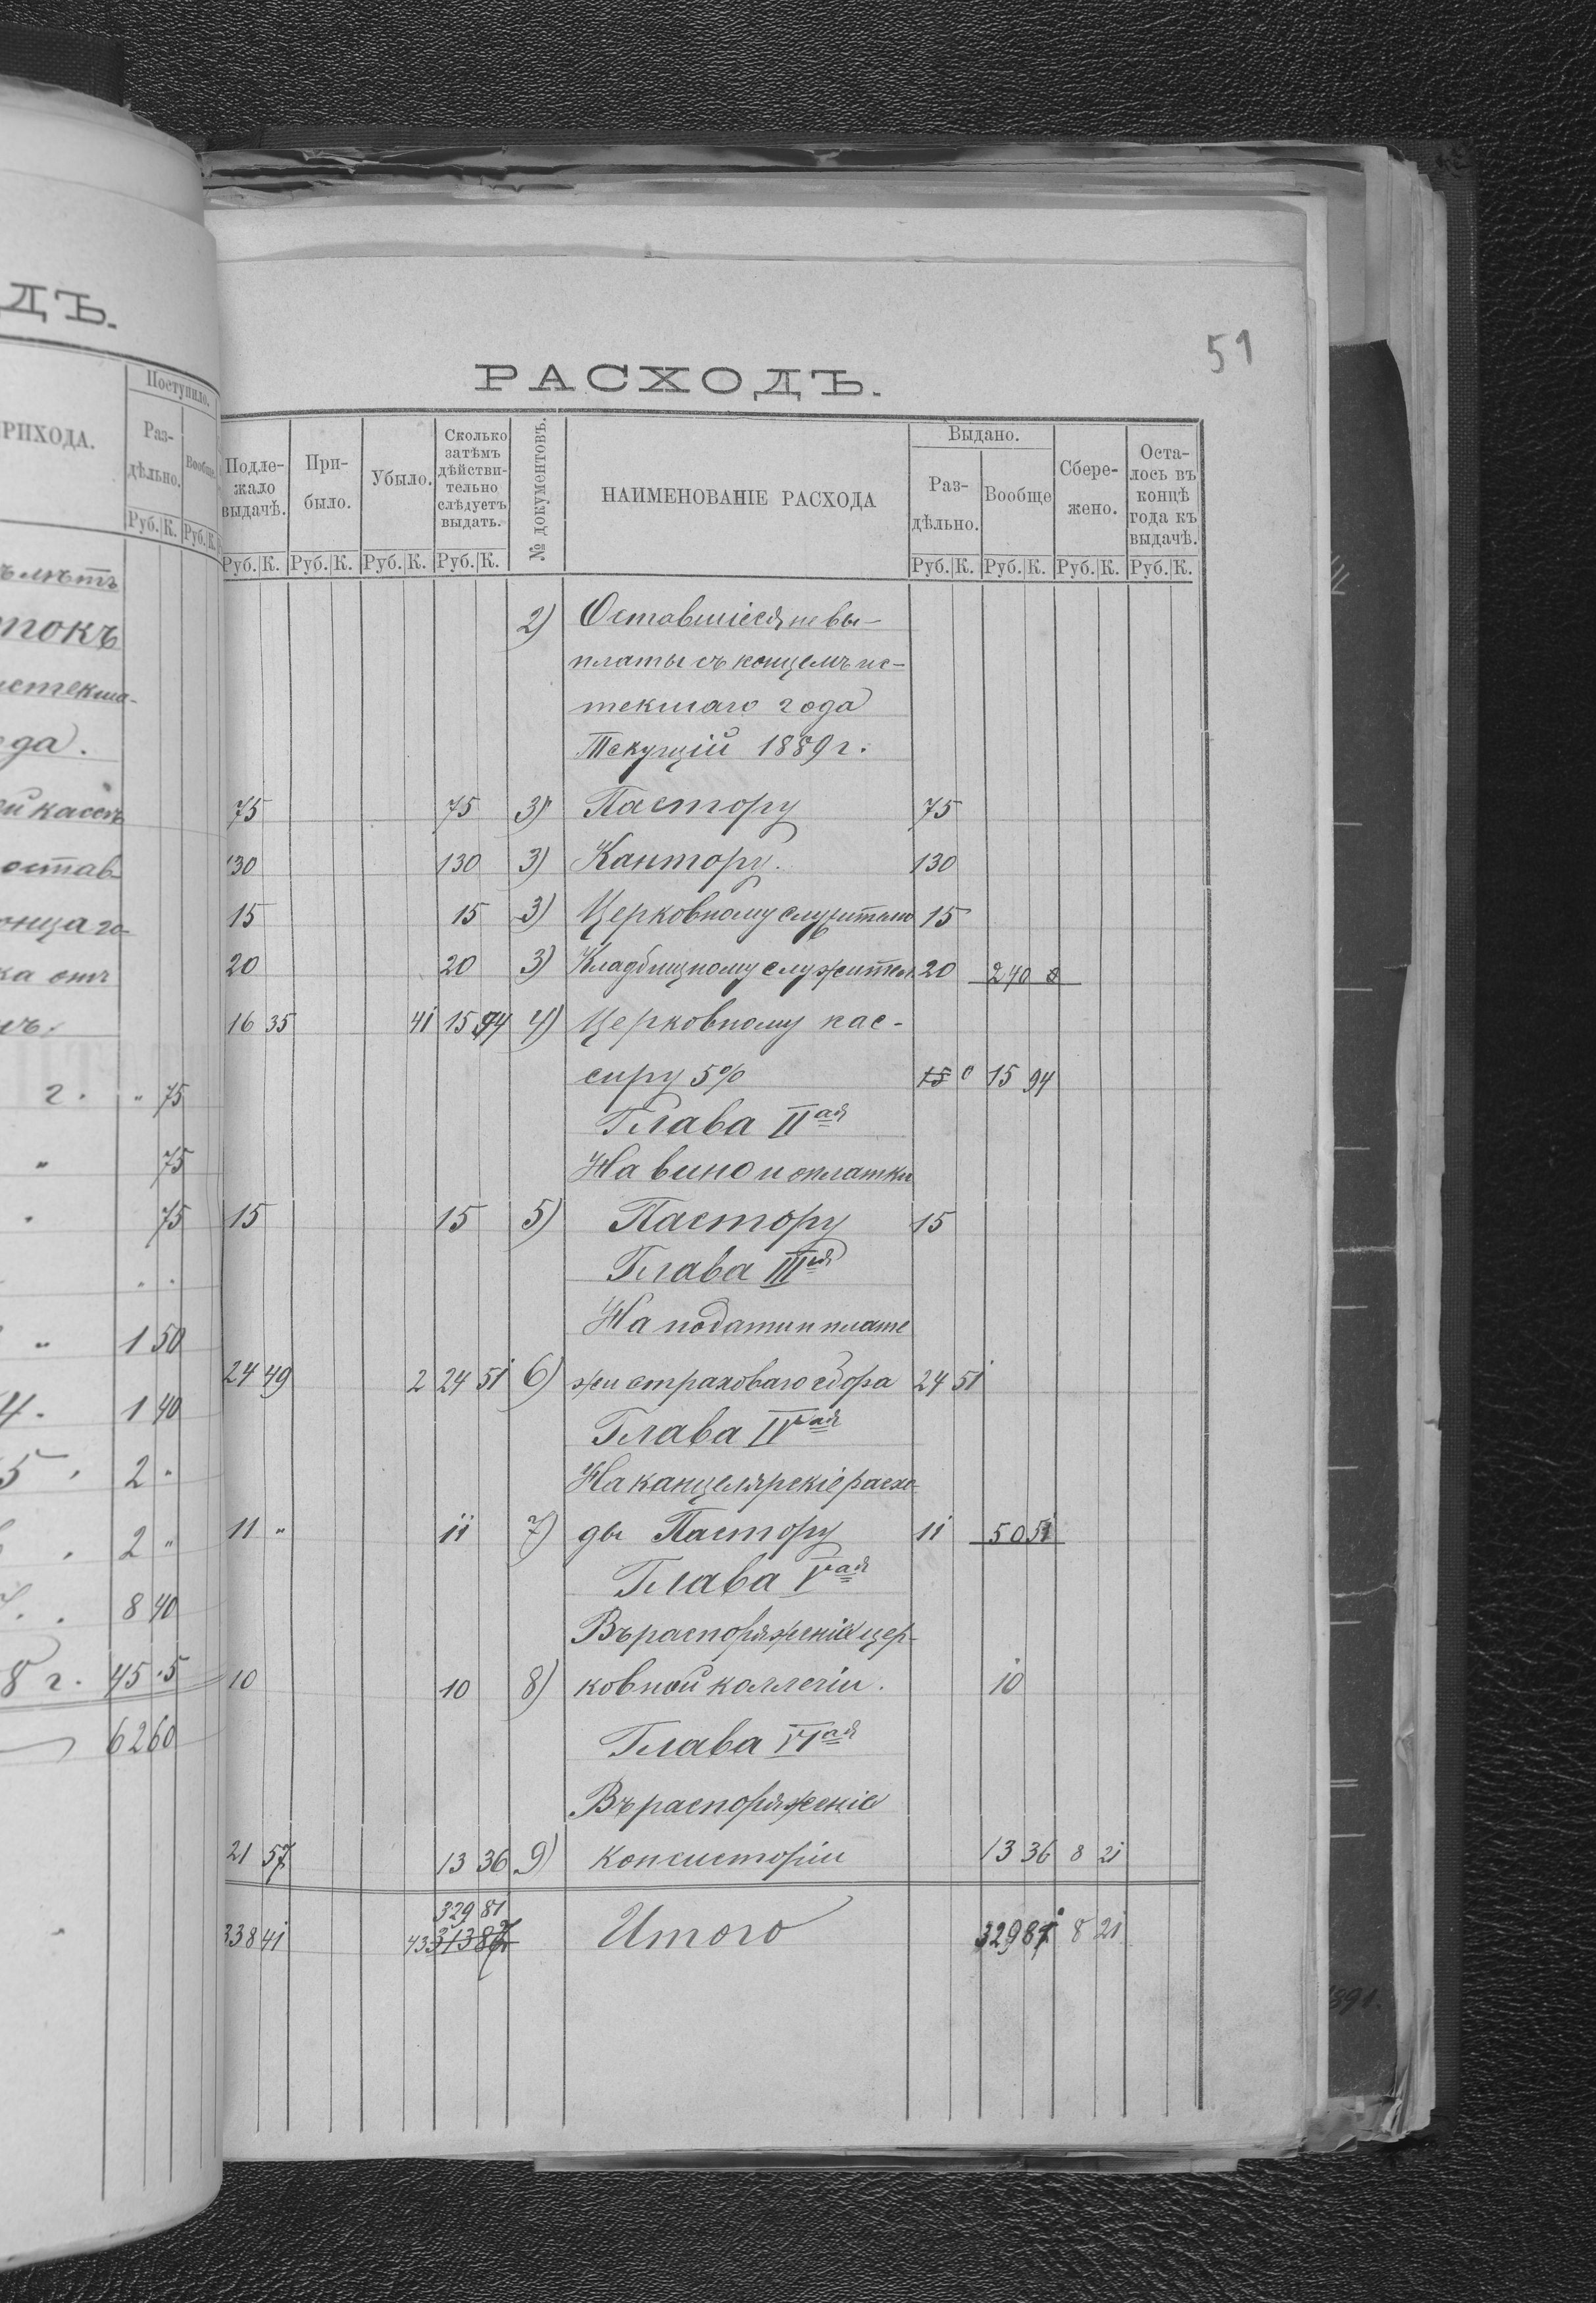 ДЪ.
РИХОДА.
Поступило.
Раз-
дѣльно.
Вообще.
Руб. К. Руб. К.
токъ
истекша-
да.
ой кассѣ
остав
онца го-
ка отъ
г. " 75
" 75
" 75
" 1 50
4. 1 40
5 2 "
2 "
8 40
8 г. 45 5
62 60
51
РАСХОДЪ.
Подле-
жало
выдачѣ.
При-
было.
Убыло.
Сколько
затѣмъ
дѣйстви-
тельно
слѣдуетъ
выдать.
№ документовъ.
НАИМЕНОВАНІЕ РАСХОДА
Выдано.
Раз-
дѣльно.
Вообще
Сбере-
жено.
Оста-
лось въ
концѣ
года къ
выдачѣ.
Руб. К. Руб. К. Руб. К. Руб. К. Руб. К. Руб. К. Руб. К. Руб. К.
2) Оставшіеся не вы-
платы съ концемъ ис-
текшаго года
Текущій 1889 г.
75 75 3) Пастору 75
130 130 3) Кантору. 130
15 15 3) Церковному служителю 15
20 20 3) Кладбищному служител. 20 240
16 35 41 15 94 4) Церковному кас-
сиру 5% 15 94
Глава IIая
На вино и оплатки
15 15 5) Пастору 15
Глава IIIья
На подати и плате
24 49 2 24 51 6) жи страховаго сбора 24 51
Глава IVая
На канцелярскіе расхо-
11 " 11 7) ды Пастору 11 50 51
Глава Vая
Въ распоряженіе цер-
10 10 8) ковной коллегіи. 10
Глава VIая
Въ распоряженіе
21 57 13 36 9) консисторіи 13 36 8 21
329 81
338 41 43 Итого 329 81 8 21
1891.